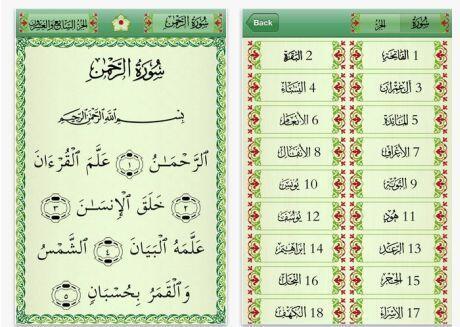 سُورَةُ الرَّحْمٰن الجزء السابع والعشرون
سُورَةُ الرَّحْمٰن
بِسْمِ اللَّهِ الرَّحْمَٰنِ الرَّحِيمِ
ٱلرَّحْمَـٰنُ ١ عَلَّمَ ٱلْقُرْءَانَ
٢ خَلَقَ ٱلْإِنسَـٰنَ ٣
عَلَّمَهُ ٱلْبَيَانَ ٤ ٱلشَّمْسُ
وَٱلْقَمَرُ بِحُسْبَانٍ ٥
Back الجزء سورة
1 الفاتحة 2 البقرة
3 آل عمران 4 النساء
5 المائدة 6 الأنعام
7 الأعراف 8 الأنفال
9 التوبة 10 يونس
11 هود 12 يوسف
13 الرعد 14 إبراهيم
15 الحجر 16 النحل
17 الإسراء 18 الكهف